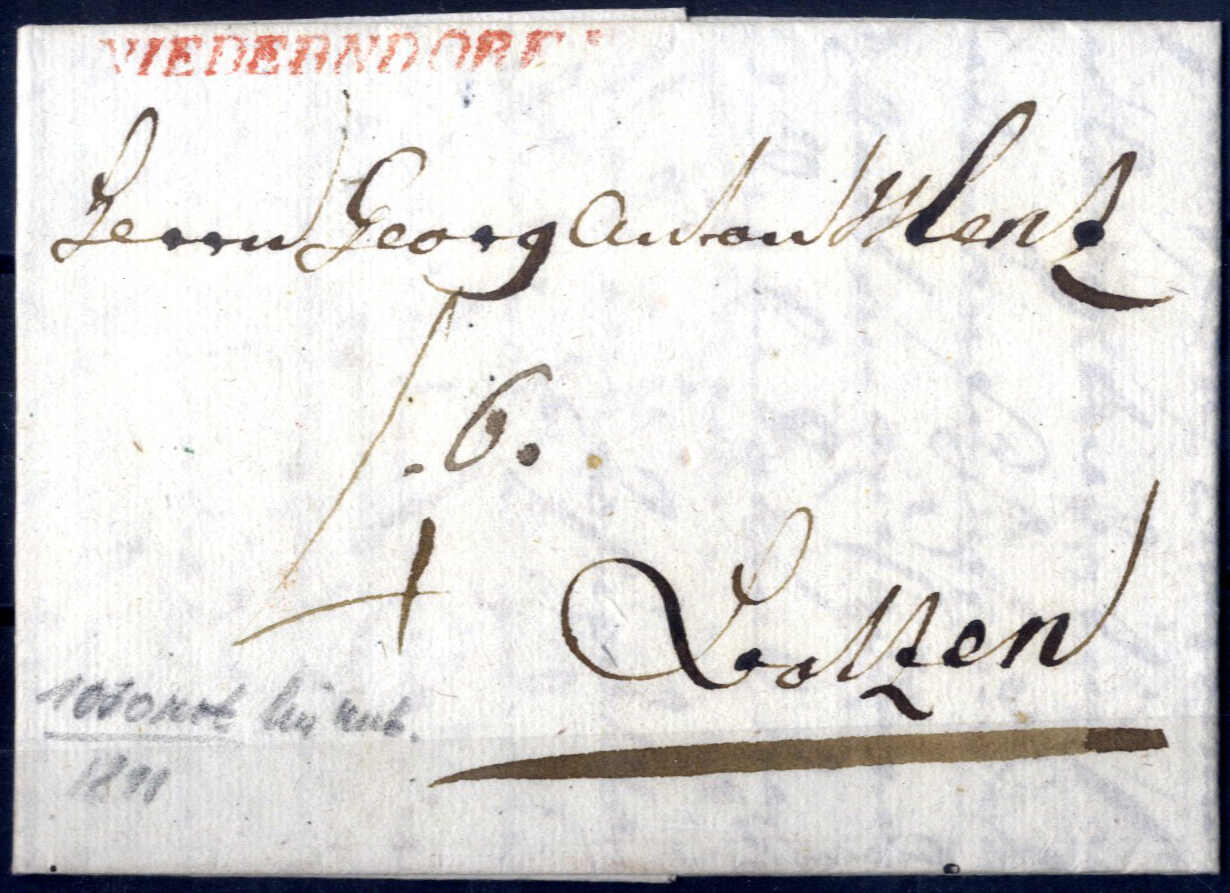 NIEDERNDORF
Herrn Georg Anton Menz
6.
4
Botzen
1811